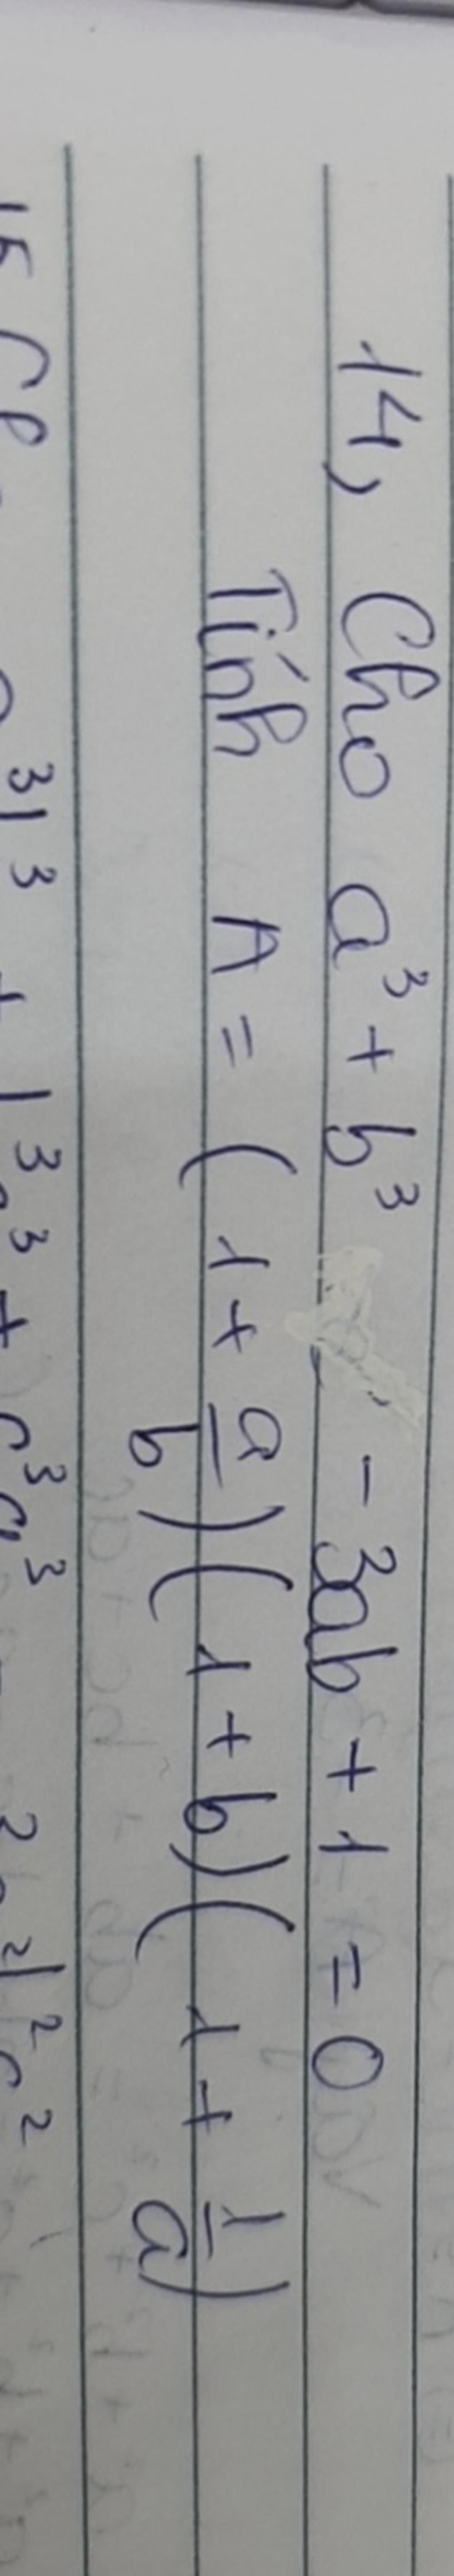 14, Cho a³ + b³ - 3ab + 1 = 0
Tính A = (1 + a/b)(1 + b)(1 + 1/a)